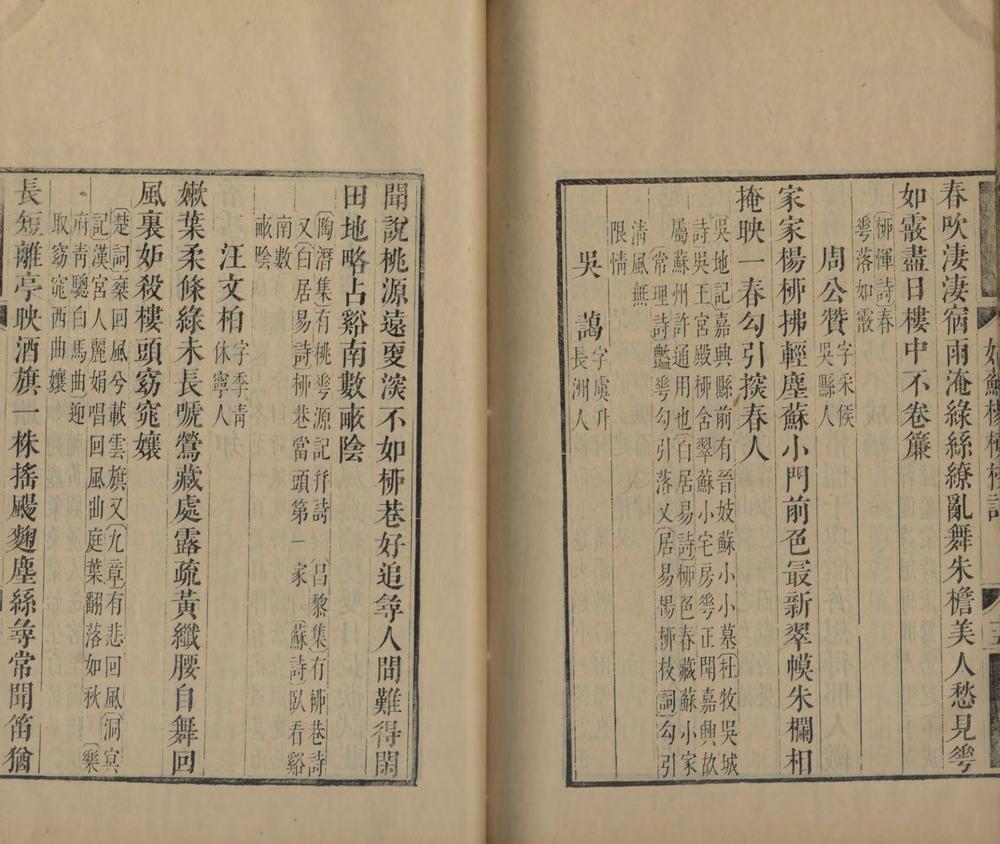 春吹淒淒宿雨淹綠絲繚亂舞朱檐美人愁見𠌶
如霰盡日樓中不卷簾
栁惲詩春
𠌶落如霰
周公贊
字采侯
吳縣人
家家楊栁拂輕塵蘇小門前色最新翠幙朱欄相
掩映一春勾引𢰅春人
吳地記嘉興縣前有晉妓蘇小小墓杜牧吳城
詩吳王宮殿栁含翠蘇小宅房𠌶正開嘉興故
屬蘇州許通用也白居易詩栁色春藏蘇小家
常理詩艷𠌶勾引落又居易楊栁枝詞勾引
清風無
限情
吳藹
字虞升
長洲人
聞說桃源遠夐深不如栁巷好追尋人間難得閑
田地略占谿南數畝陰
陶潛集有桃𠌶源記幷詩昌黎集有栁巷詩
又白居易詩栁巷當頭第一家蘇詩臥看谿
南數
畝陰
汪文柏
字季青
休寧人
嫩葉柔條綠未長嗁鶯藏處露疏黃纖腰自舞回
風裏妒殺樓頭窈窕孃
楚詞乘回風兮載雲旗又九章有悲回風洞冥
記漢宮人麗娟唱回風曲庭葉翻落如秋樂
府青驄白馬曲迎
取窈窕西曲孃
長短離亭映酒旗一株搖颺麴塵絲尋常聞笛猶